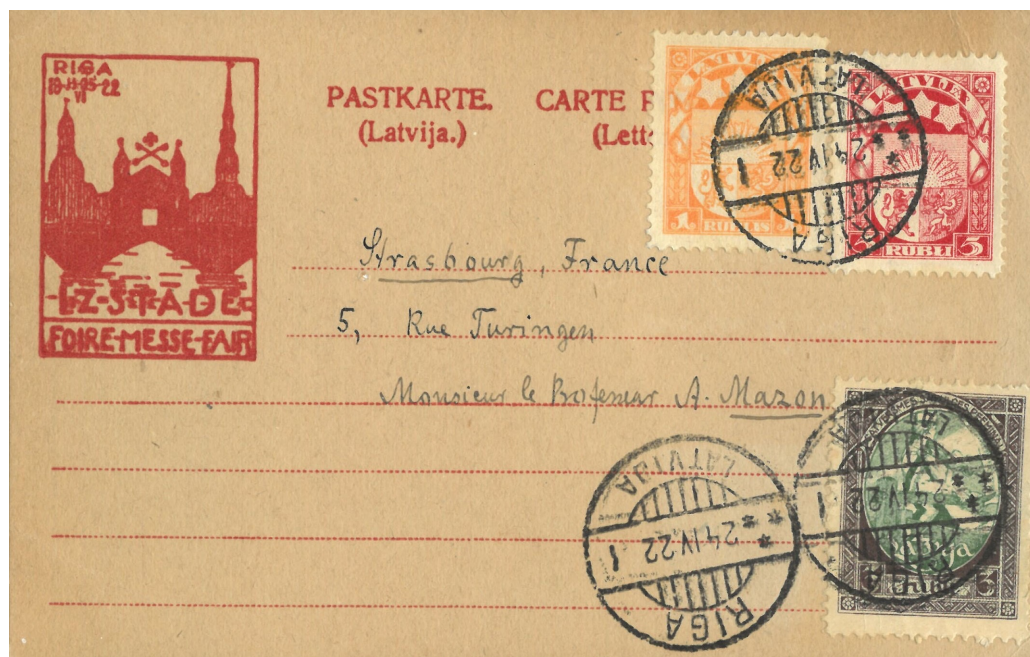 RIGA
VI
IZSTADE
FOIRE-MESSE-FAIR
PASTKARTE. CARTE
(Latvija.)
LATVIJA
1 RUBLIS
LATVIJA
RUBLI 3
LATVIJA
24 IV 22
1
RIGA
Strasbourg, France
5, Rue Turingen
Monsieur le Professeur A. Mazon
LATVIJA
24 IV 22
1
RIGA
LATVIJA
24 IV 22
1
RIGA